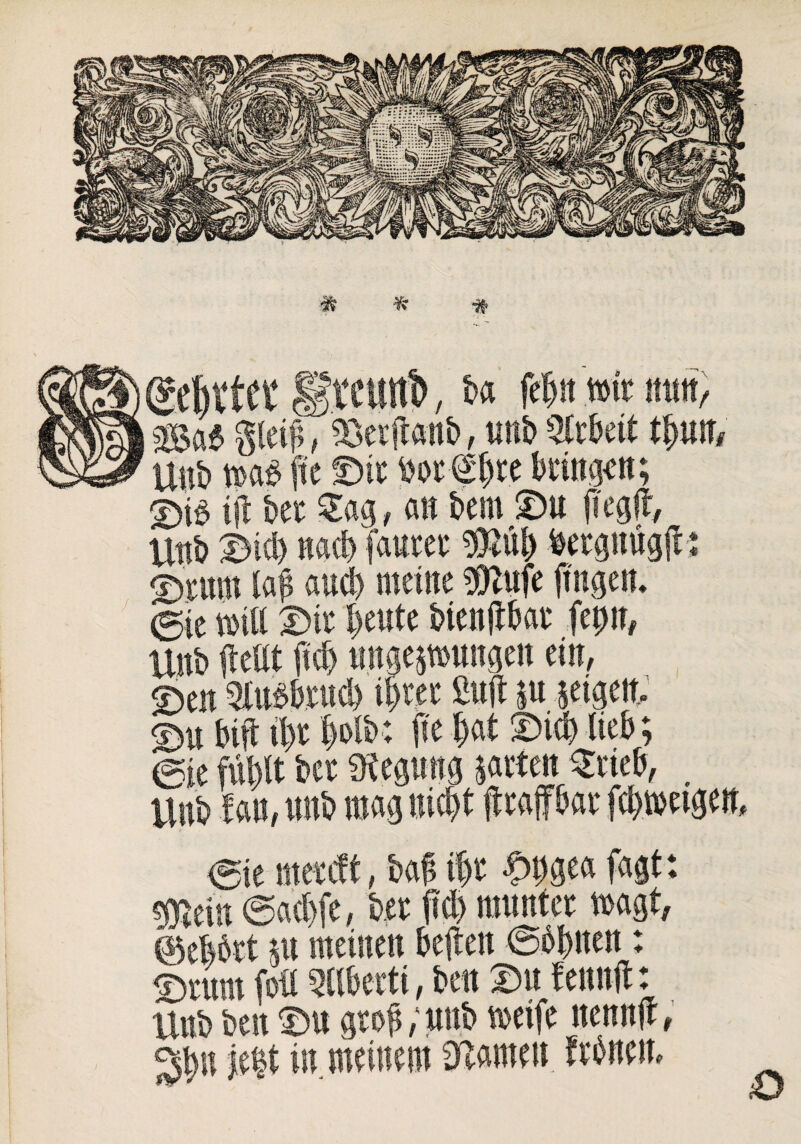 * * *
Geehrter Freund, da sehn wir nun,
Was Fleiß, Verstand, und Arbeit thun,
Und was sie Dir vor Ehre bringen;
Dis ist der Tag, an dem Du siegst,
Und Dich nach saurer Müh vergnügst:
Drum laß auch meine Muse singen.
Sie will Dir heute dienstbar seyn,
Und stellt sich ungezwungen ein,
Den Ausbruch ihrer Lust zu zeigen.
Du bist ihr hold: sie hat Dich lieb;
Sie fühlt der Regung zarten Trieb,
Und kan, und mag nicht straffbar schweigen.
Sie merckt, daß ihr Hygea sagt:
Mein Sachse, der sich munter wagt,
Gehört zu meinen besten Söhnen:
Drum soll Alberti, den Du kennst:
Und den Du groß, und weise nennst,
Ihn jetzt in meinem Namen krönen.
O